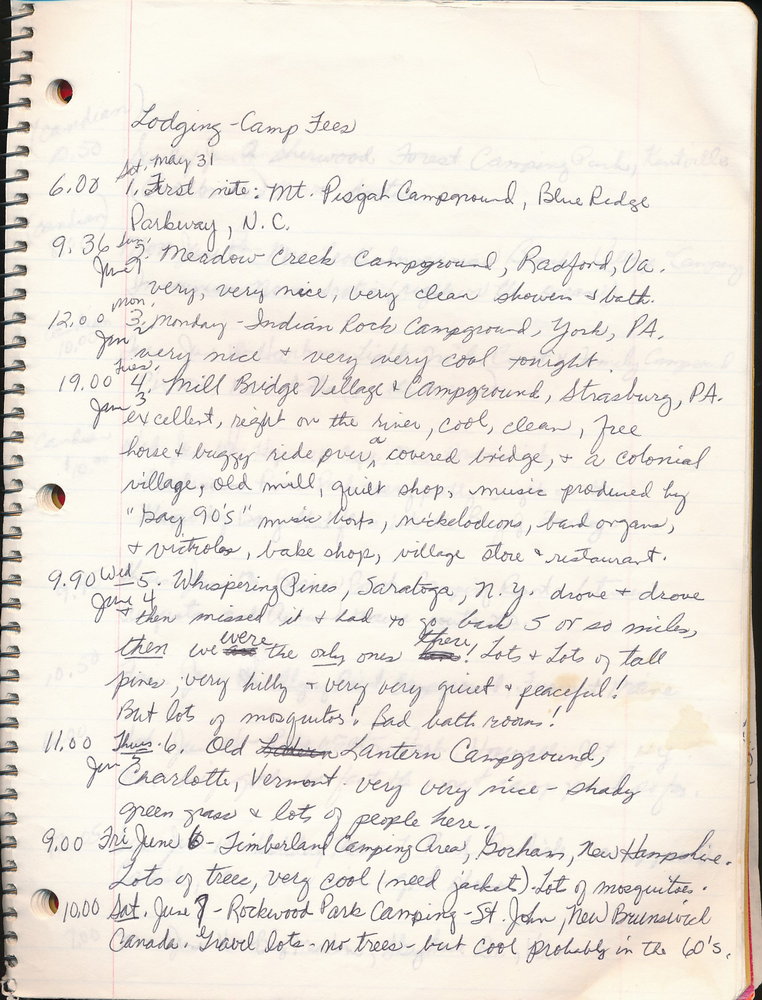 Lodging - Camp Fees
Sat. May 31
6.00 1. First nite: Mt. Pisgah Campground, Blue Ridge
Parkway, N.C.
9.36 Sun. 2. Meadow Creek Campground, Radford, Va.
June 1 very, very nice, very clean showers & bath.
mon.
12.00 3. Monday - Indian Rock Campground, York, PA.
June 2 very nice & very very cool tonight.
Tues.
19.00 4. Mill Bridge Village & Campground, Strasburg, PA.
June 3 excellent, right on the river, cool, clean, free
horse & buggy ride over a covered bridge, & a colonial
village, old mill, quilt shop, music produced by
"Gay 90's" music boxs, nickelodeons, band organs,
& victrolas, bake shop, village store & restaurant.
9.90 Wed 5. Whispering Pines, Saratoga, N.Y. drove & drove
June 4 & then missed it & had to go back 5 or so miles,
then we were the only ones there! Lots & Lots of tall
pines, very hilly & very very quiet & peaceful!
But lots of mosquitos! Bad bath rooms!
11.00 Thurs. 6. Old Lantern Campground,
June 5 Charlotte, Vermont. very very nice - shady
green grass & lots of people here.
9.00 Fri June 6 - Timberland Camping Area, Gorham, New Hampshire.
Lots of trees, very cool (need jackets) Lots of mosquitoes.
10.00 Sat. June 7 - Rockwood Park Camping - St. John, New Brunswick
Canada. Gravel lots - no trees - but cool probably in the 60's.